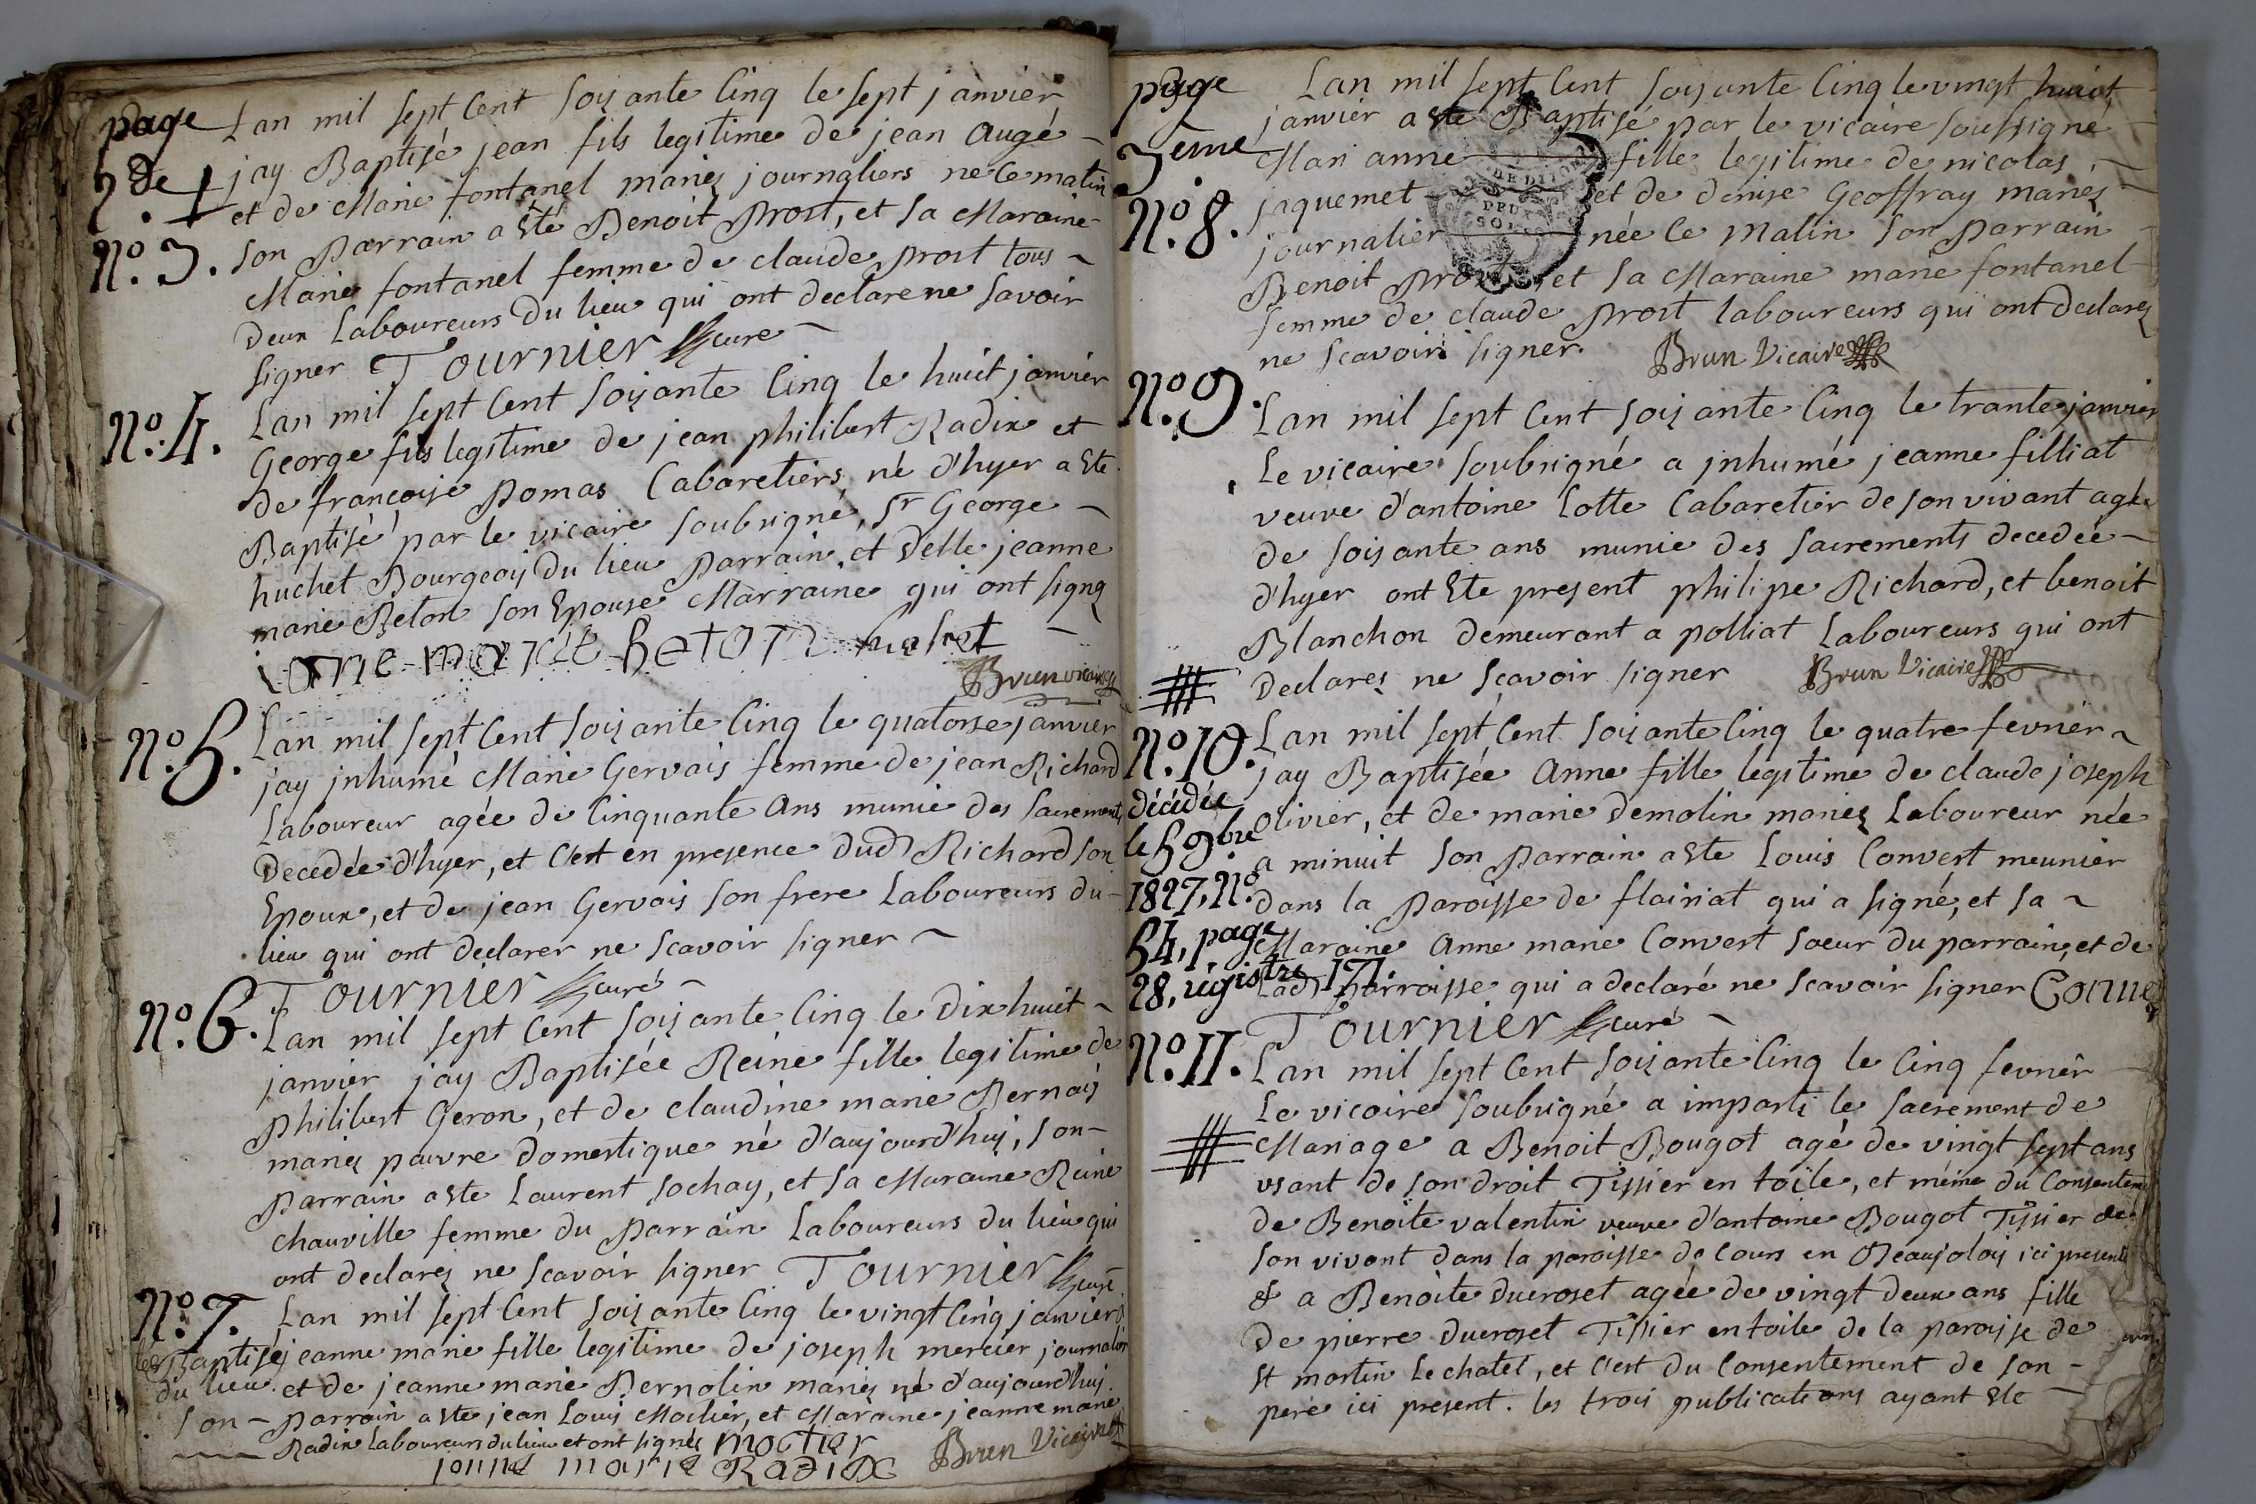 page
2de
Lan mil sept Cent soixante Cinq le sept janvier
jay Baptisé jean fils legitime de jean Augé
et de Marie fontanel mariez journaliers ne Ce matin
No. 3.
son Parrain a Eté Benoit Prost, et sa Maraine
Marie fontanel femme de claude prost tous
Deux Laboureurs Du lieu qui ont declare ne savoir
signer Tournier curé
No. 4.
Lan mil sept Cent soixante Cinq le huit janvier
George fils legitime de jean philibert Radix et
de françoise Pomas Cabaretiers, né d'hyer a Ete
Baptisé par le vicaire soubsigné, Sr George
huchet Bourgeois Du lieu Parrain, et Delle jeanne
marie Reton son Epouse Marraine qui ont signez
marie Reton huchet
Brun vicaire
No. 5.
Lan mil sept Cent soixante Cinq le quatorse janvier
jay jnhumé Marie Gervais femme de jean Richard
Laboureur agée de Cinquante Ans munie des sacrements
Decedée d'hyer, et C'est en presence dud Richard son
Epoux, et de jean Gervais son frere Laboureurs du
lieu qui ont declarer ne scavoir signer
Tournier curé
No. 6.
Lan mil sept Cent soixante Cinq le Dix huit
janvier jay Baptisée Reine fille legitime de
Philibert Geron, et de claudine marie Bernais
mariez pauvre domestique né d'aujourd'huy, son
parrain a ete Laurent sochay, et sa Maraine Reine
chauville femme du Parrain Laboureurs du lieu qui
ont declarez ne scavoir signer Tournier curé
No. 7.
Lan mil sept Cent soixante Cinq le vingt Cinq janvier
Baptisé jeanne marie fille legitime de joseph mercier journalier
du lieu et de jeanne marie Bernolin mariez né d'aujourd'huy.
son parrain a ete jean Louis Moctier, et Maraine jeanne marie
Radix Laboureurs du lieu et ont signés moctier
marie RADIX Brun Vicaire
page
3eme
Lan mil sept Cent soixante Cinq le vingt huict
janvier a ete Baptisé par le vicaire soussigné
Mari anne fille legitime de nicolas
No. 8.
jaquemet et de denise Geoffray mariés
DEUX
SOLS
journalier née Ce matin son parrain
Benoit Prost, et sa Maraine marie fontanel
femme de claude Prost laboureurs qui ont declarez
ne scavoir signer. Brun Vicaire
No. 9.
Lan mil sept Cent soixante Cinq le trante janvier
Le vicaire soubsigné a jnhumé jeanne filliat
veuve d'antoine Lotte Cabaretier de son vivant agée
de soixante ans munie des sacrements decedée
d'hyer ont Ete present philipe Richard, et benoit
Blanchon demeurant a polliat Laboureurs qui ont
Declarez ne scavoir signer Brun Vicaire
No. 10.
Lan mil sept Cent soixante Cinq le quatre fevrier
jay Baptisée Anne fille legitime de claude joseph
décédée
le 5 9bre
1827, No.
54, page
28, régistre 171.
Olivier, et de marie demolin mariez Laboureur née
a minuit son Parrain a ete Louis Convert meunier
dans la Paroisse de flairiat qui a signé, et sa
Maraine Anne marie Convert soeur du parrain, et de
Lad parroisse qui a declaré ne scavoir signer
Tournier curé
No. 11.
Lan mil sept Cent soixante Cinq le Cinq fevrier
Le vicaire soubsigné a imparti le sacrement de
Mariage a Benoit Bougot agé de vingt sept ans
usant de son droit Tissier en toile, et même du Consentem
de Benoite valentin veuve d'antoine Bougot Tissier de
son vivant dans la paroisse de Cours en Beaujolois ici presente
& a Benoite ducroset agée de vingt deux ans fille
de pierre ducroset Tissier en toile de la paroisse de
st martin Le chatel, et C'est du Consentement de son
pere ici present. les trois publications ayant Ete